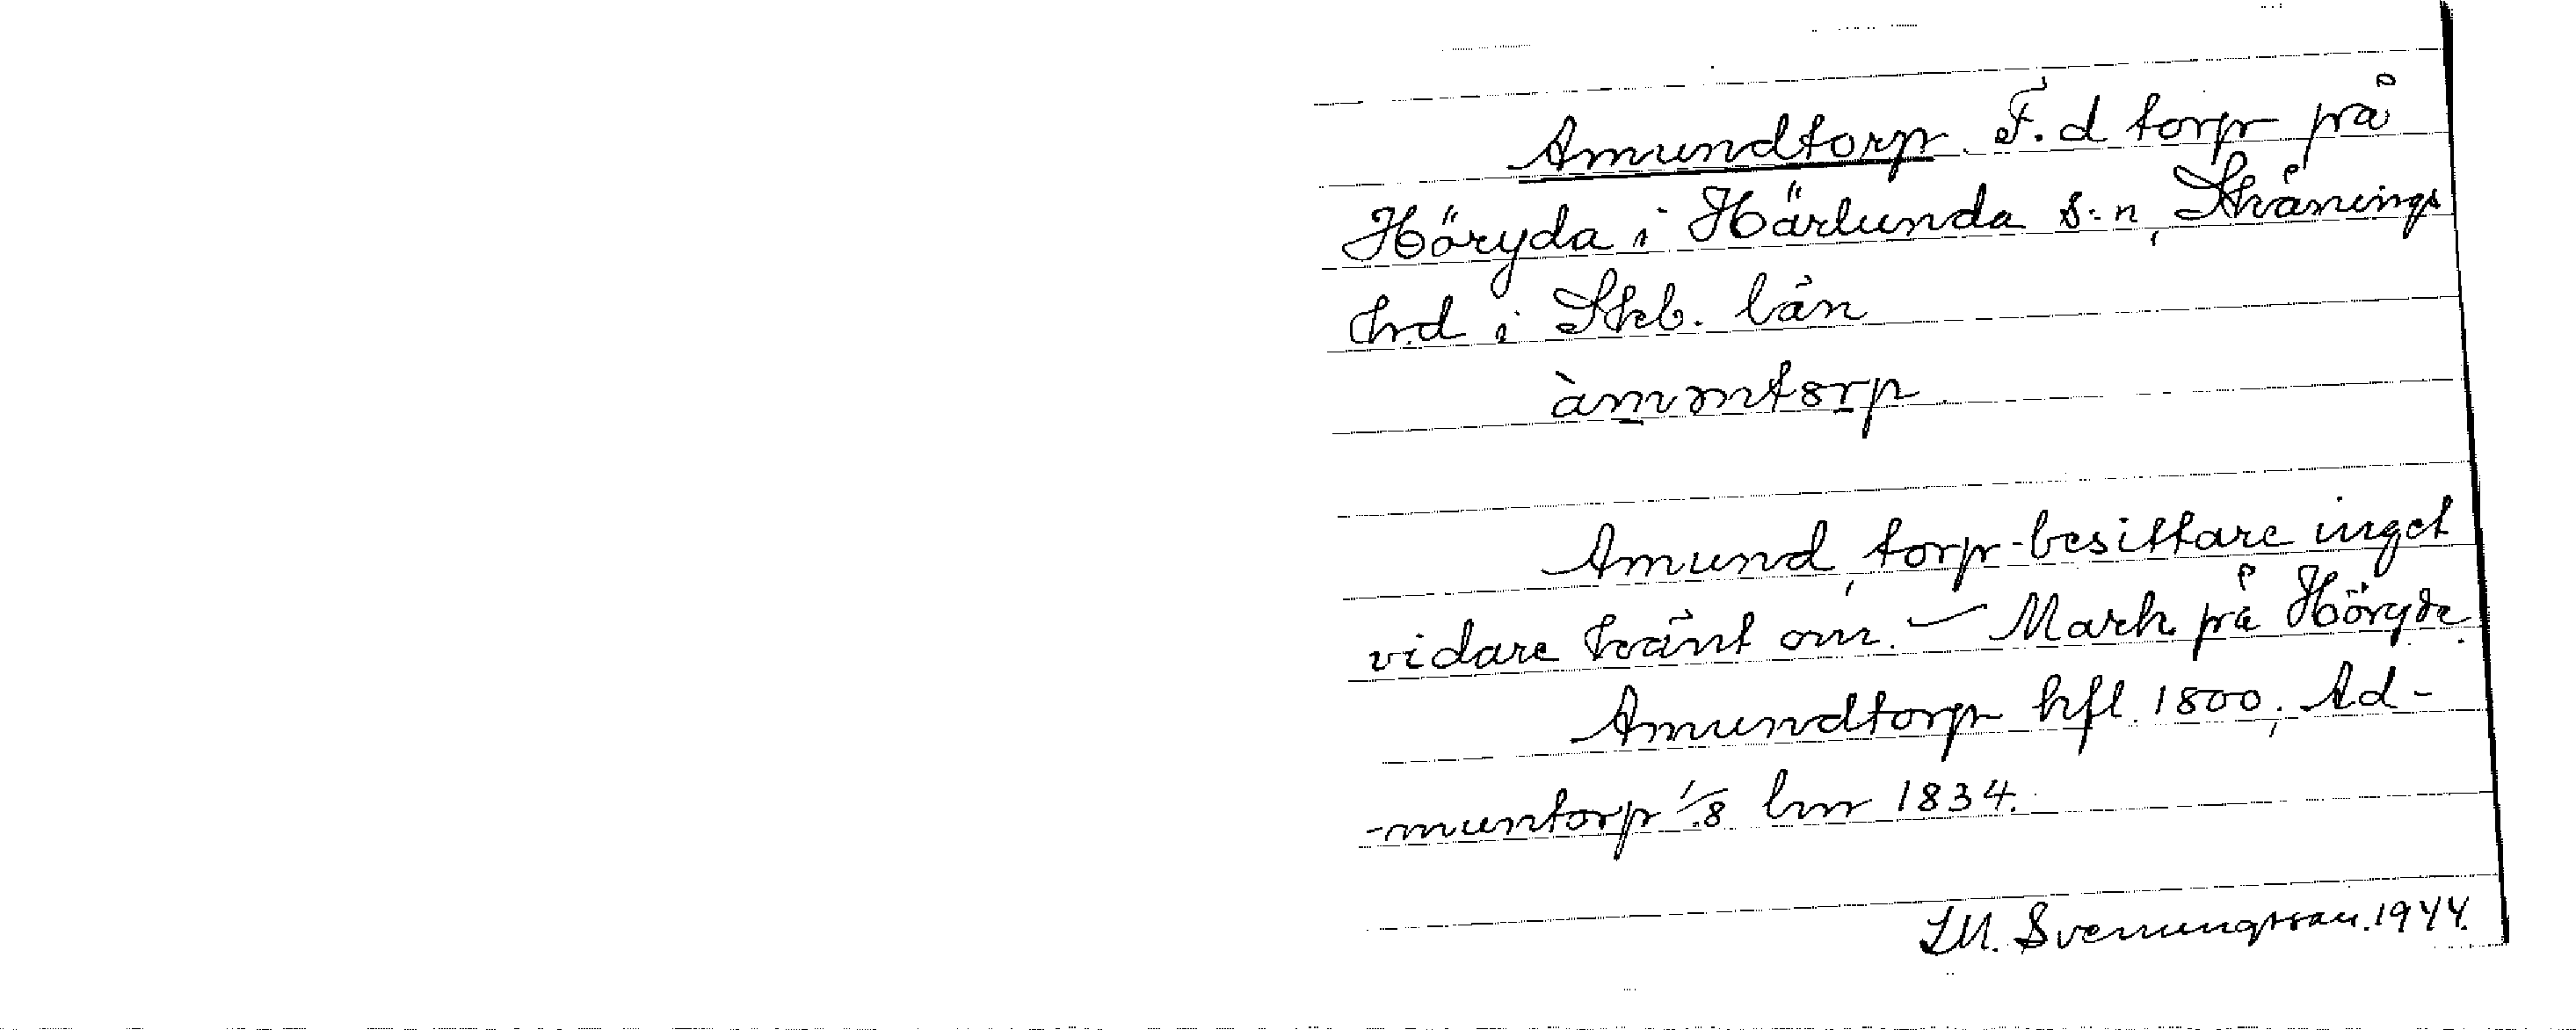 Amundtorp. F.d torp på
Höryda i Härlunda s:n, Skånings
hd i Skb. län
àmmmtorp
Amund, torp-besittare inget
vidare känt om. — Mark på Höryda.
Amundtorp hfl. 1800; Ad-
-muntorp 1/8 lm 1834.
S.M. Svenungsson. 1944.